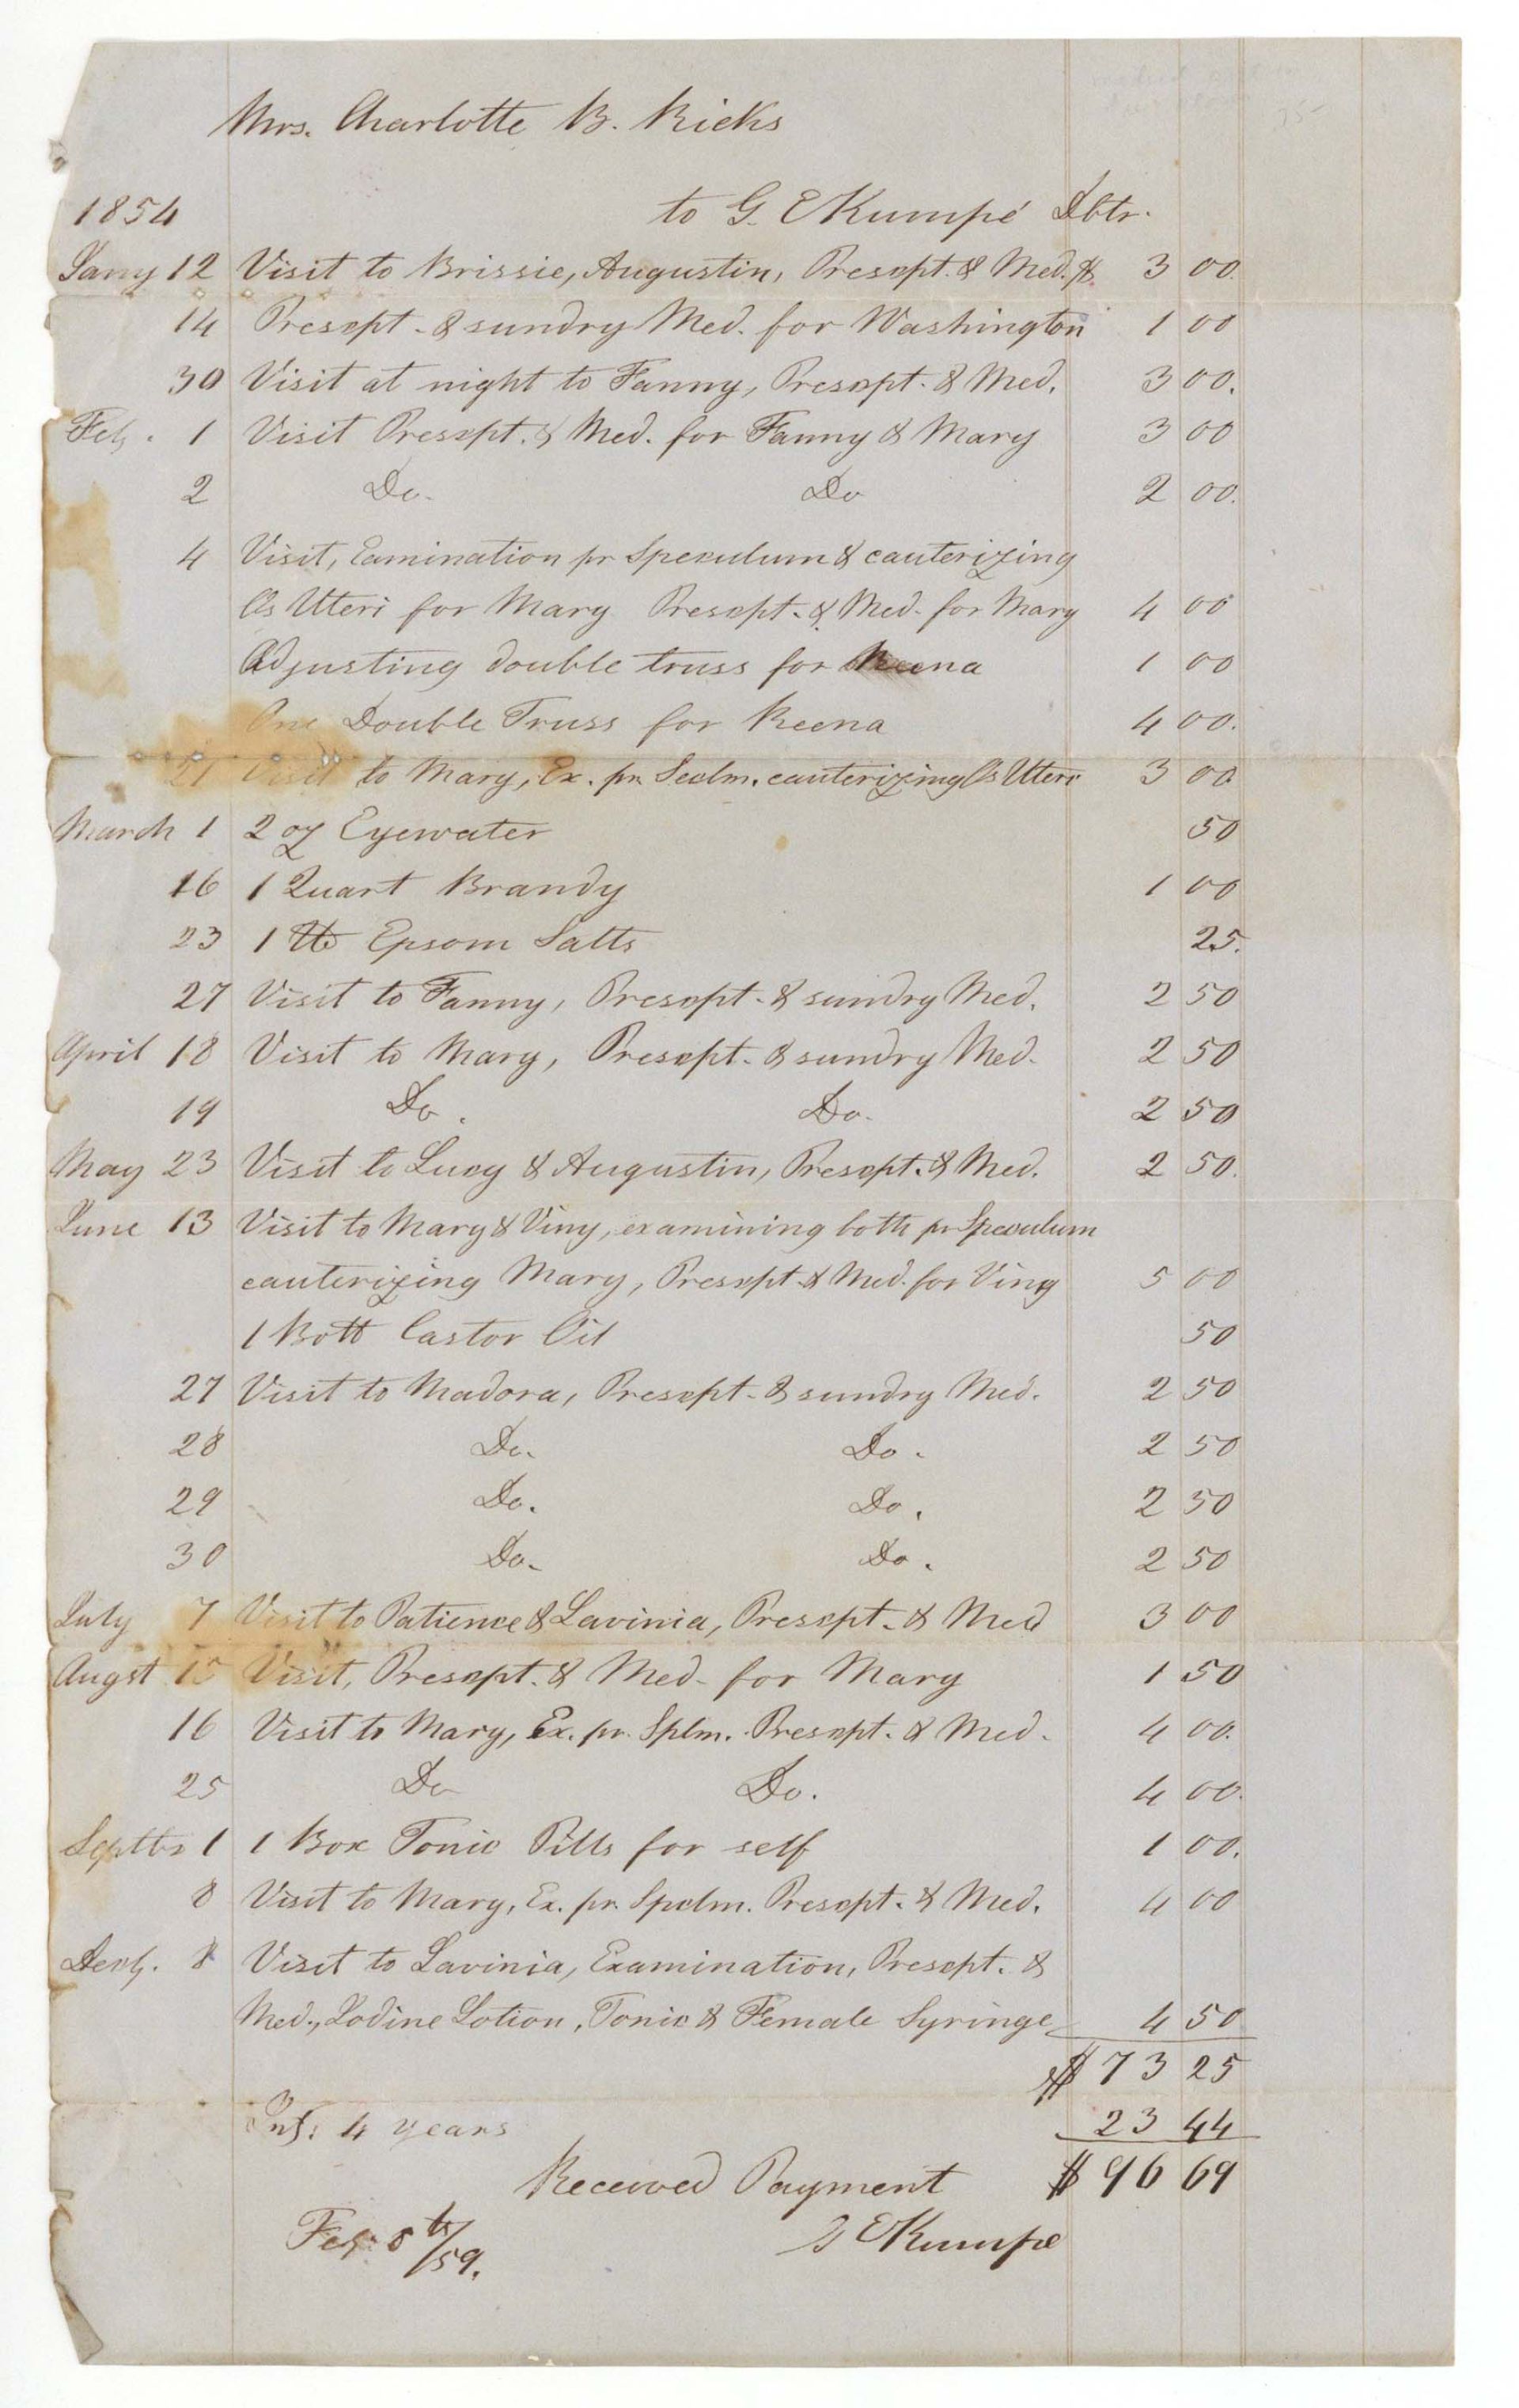 Mrs. Charlotte B. Ricks
1854 to G. E Kumpé Dbtr.
Jany 12 Visit to Brissie, Augustin, Prescpt. & Med. $ 3 00.
14 Prescpt. & sundry Med. for Washington 1 00
30 Visit at night to Fanny, Prescpt. & Med. 3 00.
Feb. 1 Visit Prescpt. & Med. for Fanny & Mary 3 00
2 Do. Do 2 00.
4 Visit, Eamination pr Speculum & cauterizing
Os Uteri for Mary Prescpt. & Med. for Mary 4 00
Adjusting double truss for Reena 1 00
One Double Truss for Reena 4 00.
21 Visit to Mary, Ex. pr. Seclm. cauterizing Os Uteri 3 00
March 1 2 oz Eyewater 50
16 1 Quart Brandy 1 00
23 1 lb Epsom Salts 25.
27 Visit to Fanny, Prescpt. & sundry Med. 2 50
April 18 Visit to Mary, Prescpt. & sundry Med. 2 50
19 Do. Do. 2 50
May 23 Visit to Lucy & Augustin, Prescpt. & Med. 2 50.
June 13 Visit to Mary & Viny, examining both pr Speculum
cauterizing Mary, Prescpt. & Med. for Viny 5 00
1 Bott Castor Oil 50
27 Visit to Madora, Prescpt. & sundry Med. 2 50
28 Do. Do. 2 50
29 Do. Do. 2 50
30 Do. Do. 2 50
July 7 Visit to Patience & Lavinia, Prescpt. & Med 3 00
Augst Visit, Prescpt. & Med. for Mary 1 50
16 Visit to Mary, Ex. pr. Splm. Prescpt. & Med. 4 00.
25 Do Do. 4 00.
Septbr 1 1 Box Tonic Pills for self 1 00.
8 Visit to Mary, Ex. pr. Spclm. Prescpt. & Med. 4 00
Decb. 8 Visit to Lavinia, Examination, Prescpt. &
Med., Iodine Lotion, Tonic & Female Syringe 4 50
$ 73 25
Int: 4 years 23 44
Received Payment $ 96 69
Feb. 8th/59. G E Kumpe